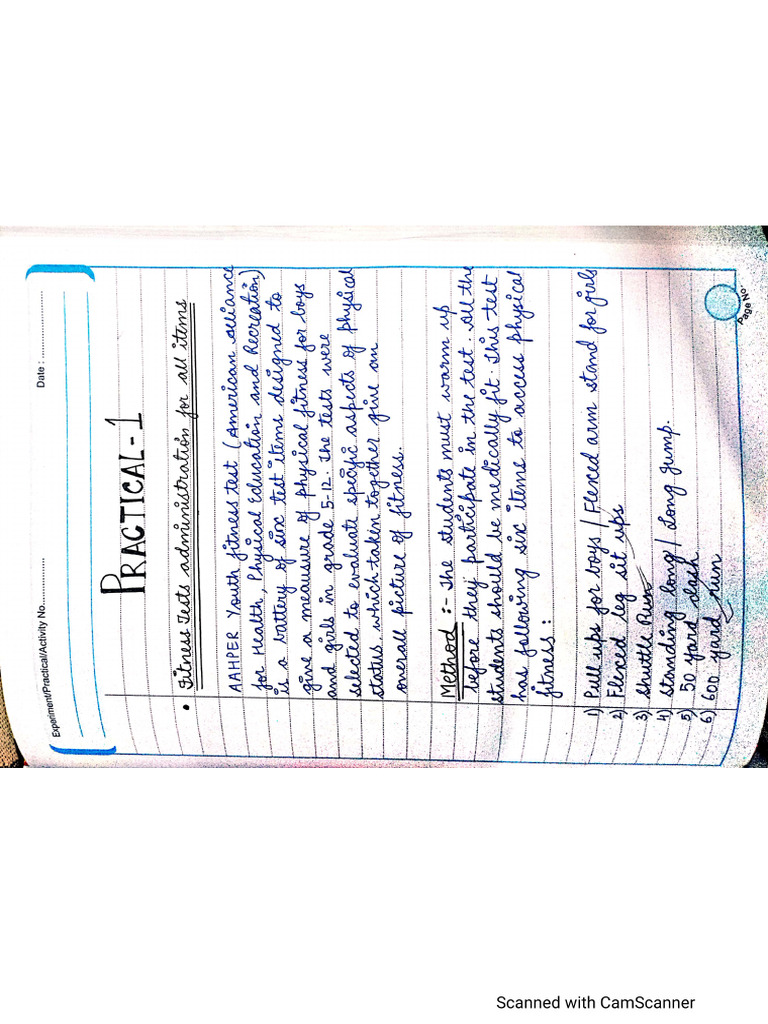 Experiment/Practical/Activity No.................
Date : ....................
PRACTICAL-1
• Fitness Tests administration for all items
AAHPER Youth fitness test (American alliance
for Health, Physical Education and Recreation)
is a battery of six test items designed to
give a meausure of physical fitness for boys
and girls in grade 5-12. The tests were
selected to evaluate specific aspects of physical
status which taken together give an
overall picture of fitness.
Method :- The students must warm up
before they participate in the test. All the
students should be medically fit. This test
has following six items to access physical
fitness :
1) Pull ups for boys / Flexed arm stand for girls
2) Flexed leg sit ups
3) Shuttle Run
4) Standing long / Long Jump.
5) 50 yard dash
6) 600 yard run
Page No.
Scanned with CamScanner